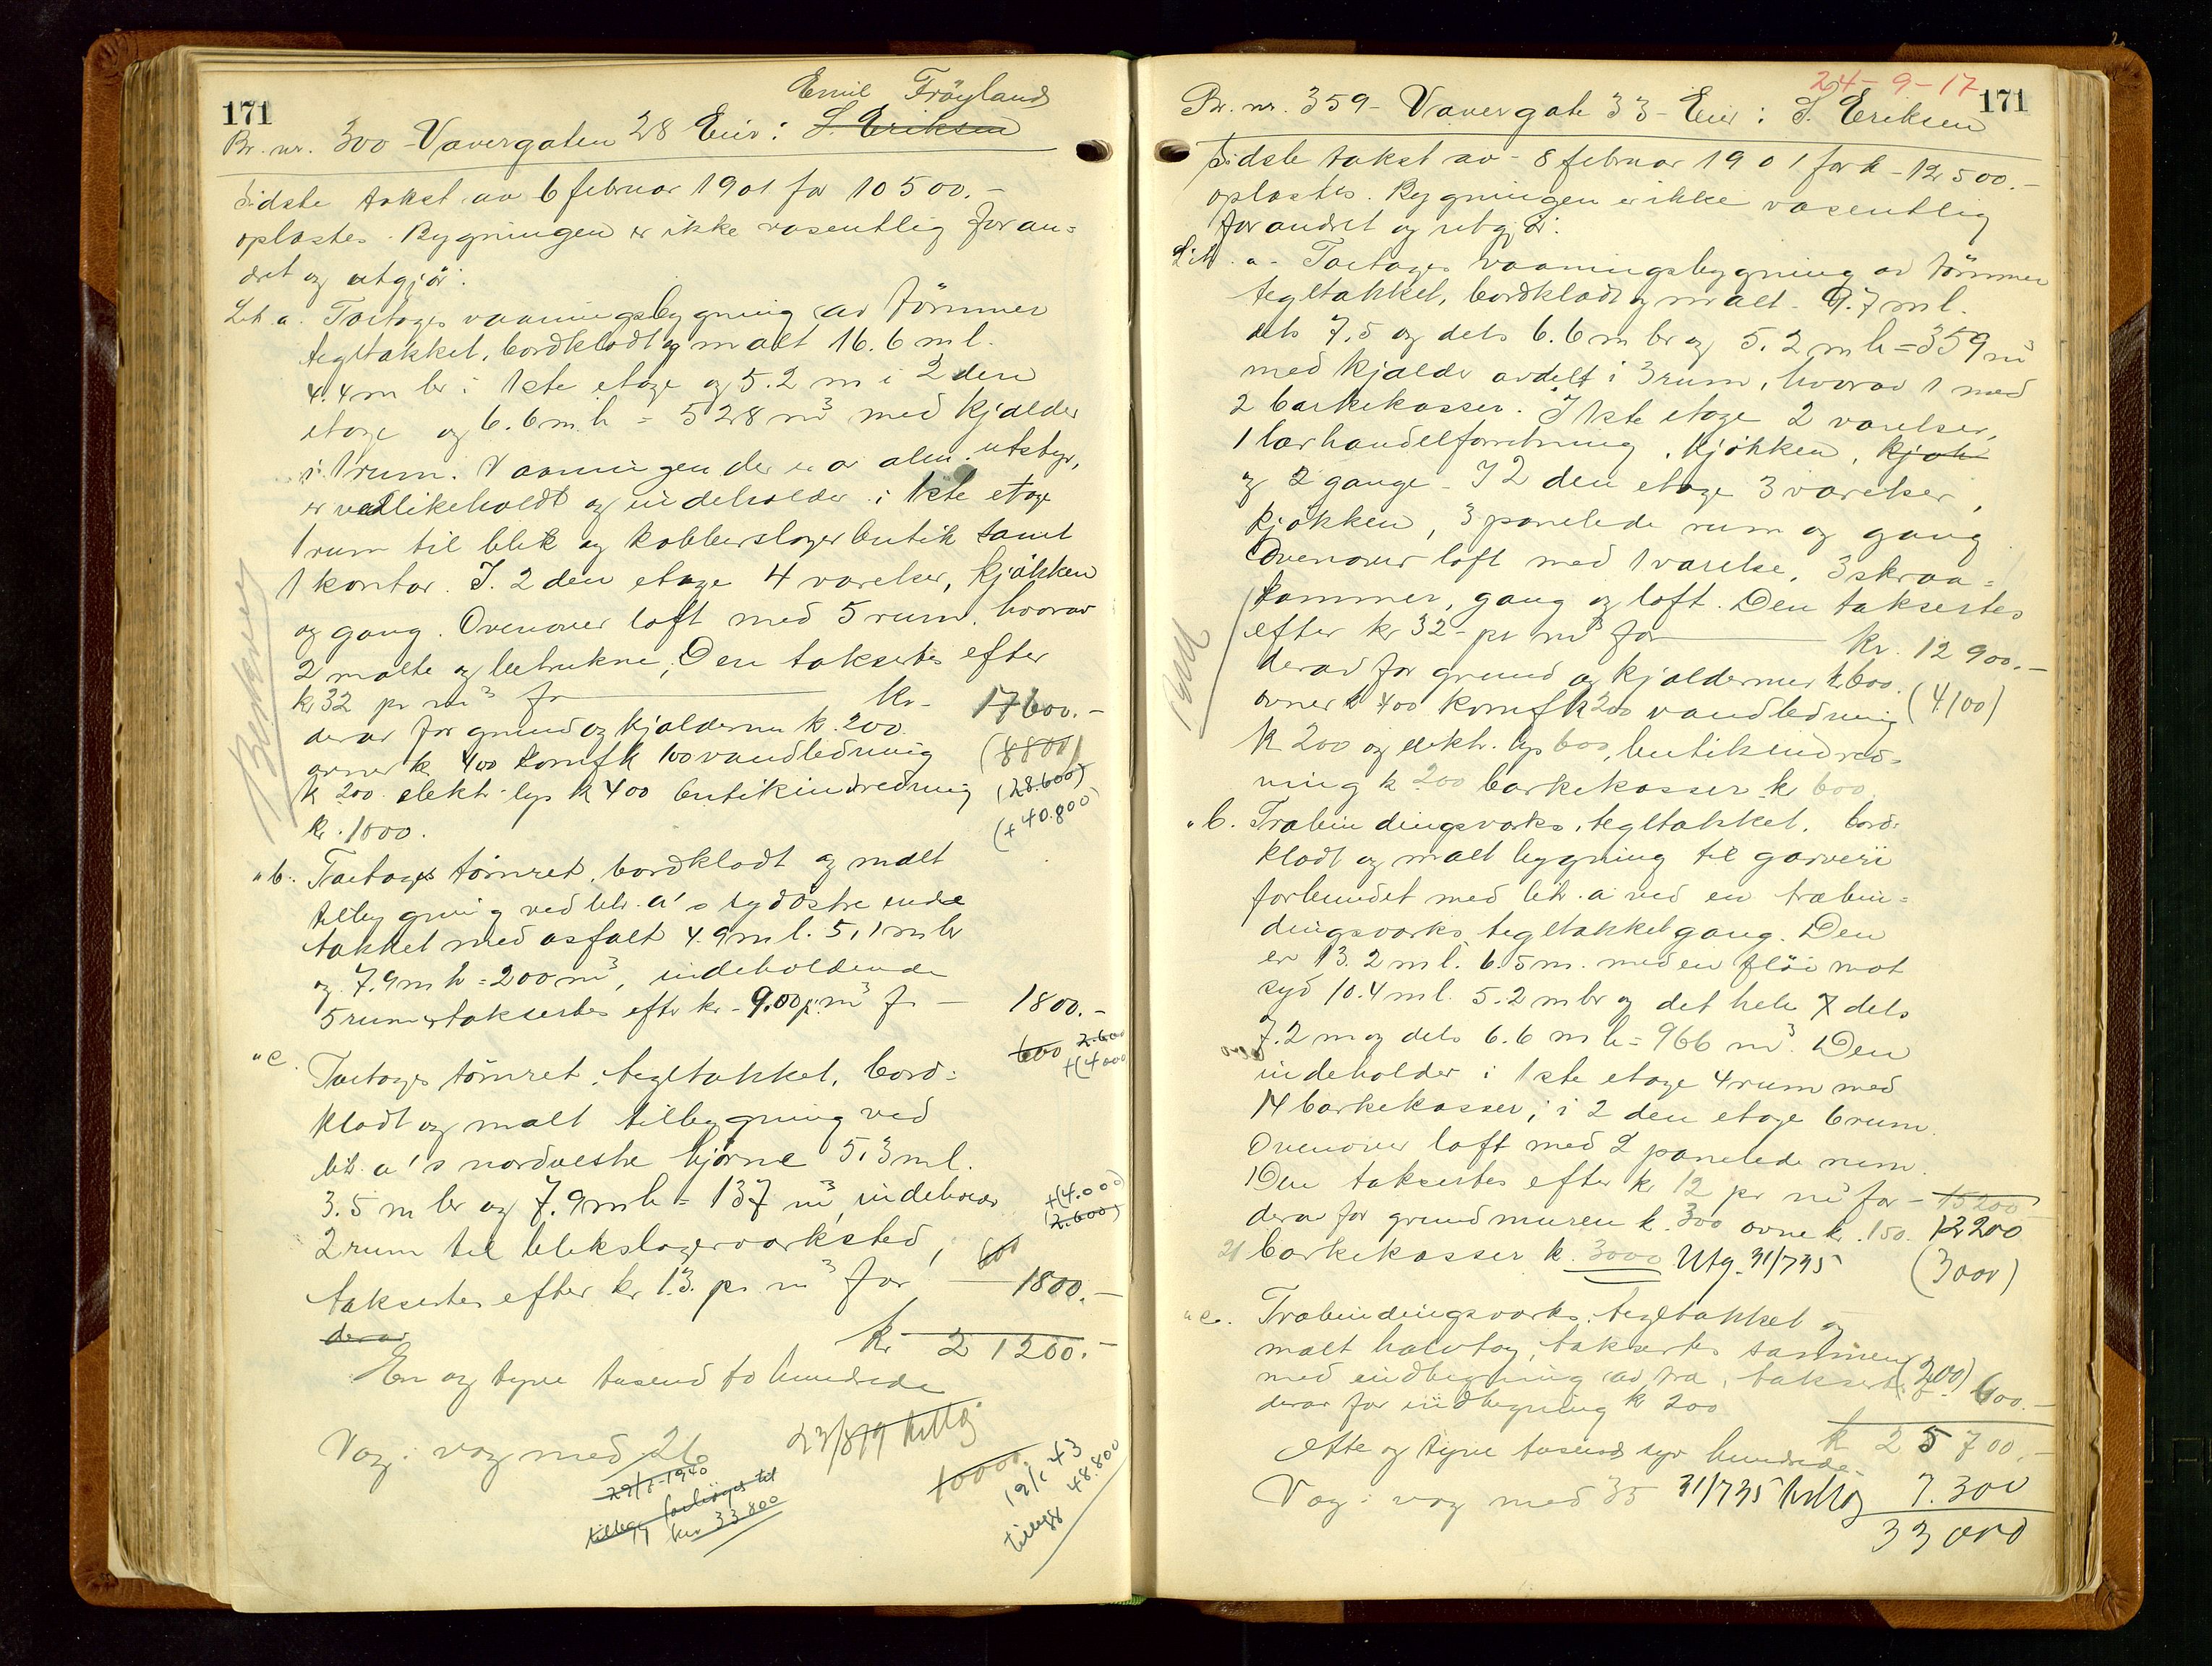 Emil Fröyland
171
Br. nr. 300 - Vavergaten 28 Eier: S. Eriksen
Sidste takst av 6 februar 1901 for 10500.-
oplæstes. Bygningen er ikke væsentlig foran=
dret og utgjør:
Lit. a. Toetages vaaningsbygning av tømmer
tegltækket, bordklædt og malt 16.6 m l.
4.4 m br i 1ste etage og 5.2 m i 2den
etage og 6.6 m. h = 528 m³ med kjælder
i 1 rum. Vaaningen der er av alm. utstyr,
er vedlikeholdt og indeholder i 1ste etage
1 rum til blik og kobberslagerbutik samt
1 kontor. I 2den etage 4 værelser, kjøkken
og gang. Ovenover loft med 5 rum, hvorav
2 malte og betrukne, Den taksertes efter
kr 32 pr m³ for kr. 17600.-
derav for grund og kjældermur k. 200.
ovner k 400 komf k 100 vandledning (8800)
k 200 elekt. lys k 400 butikindredning (28.600)
kr. 1000. (+ 40.800)
Beskrev
" b. Toetages tømret, bordklædt og malt
tilbygning ved litr. a's sydøstre ende
tækket med asfalt 4.9 m l. 5,1 m br
og 7.9 m h = 200 m³, indeholdende
5 rum taksertes efter kr. 9.00 pr. m³ for - 1800.-
600 2.600
+(4000
" c. Toetages tømret, tegltækket, bord=
klædt og malt tilbygning ved
lit. a's nordvestre hjørne 5.3 m l.
3.5 m br og 7.9 m h = 137 m³, indehold
+(4.000)
(2.600)
2 rum til blikslagerværksted,
600
taksertes efter kr 13. pr m³ for 1800.-
derav kr 21200.-
En og tyve tusend to hundrede
Væg i væg med 26 23/8 19
10000.
29/5-1940
tillegg forhøiges til
kr 33.800
19/1 43
tillegg 48.800
24-9-17
171
Br. nr. 359 - Vavergate 33 - Eier: S. Eriksen
Sidste takst av - 8 februar 1901 for k - 12500.-
oplæstes. Bygningen er ikke væsentlig
forandret og utgjør:
Lit. a - Toetages vaaningsbygning av tømmer
tegltækket, bordklædt og malt - 9.7 m l.
dels 7,5 og dels 6.6 m br og 5.2 m h = 359 m³
med kjælder avdelt i 3 rum, hvorav 1 med
2 barkekasser. I 1ste etage 2 værelser,
1 lærhandelforretning, kjøkken, kjøk
og 2 gange - I 2den etage 3 værelser,
kjøkken, 3 panelede rum og gang
Ovenover loft med 1 værelse, 3 skraa=
kammer, gang og loft. Den taksertes
efter kr 32- pr m³ for kr. 12900.-
derav for grund og kjældermur k 600.
ovner k 400 komf k 200 vandledning (4100)
k 200 og elektr. lys 600, butikindred=
ning k 200 barkekasser k 600.
" b. Træbindingsværks, tegltækket, bord=
klædt og malt bygning til garveri
forbundet med litr. a ved en træbin=
dingsværks, tegltækket gang. Den
er 13.2 m l. 6.5 m. med en fløi mot
syd 10.4 m l. 5.2 m br og det hele 7 dels
7.2 m og dels 6.6 m h = 966 m³. Den
indeholder i 1ste etage 4 rum med
14 barkekasser, i 2den etage 6 rum.
Ovenover loft med 2 panelede rum.
Den taksertes efter kr 12 pr m³ for - 15200
derav for grundmuren k. 300 ovne k. 150. 12200
21 barkekasser k. 3000 Utg. 31/7 35 (3000)
" c. Træbindingsværks, tegltækket og
malt halvtag, taksertes sammen
med indbygning av træ, taksert (200) 600.-
derav for indbygning k 200
k 25700.-
Otte og tyve tusend syv hundrede
Væg i væg med 35 31/7 35 7.300
33000